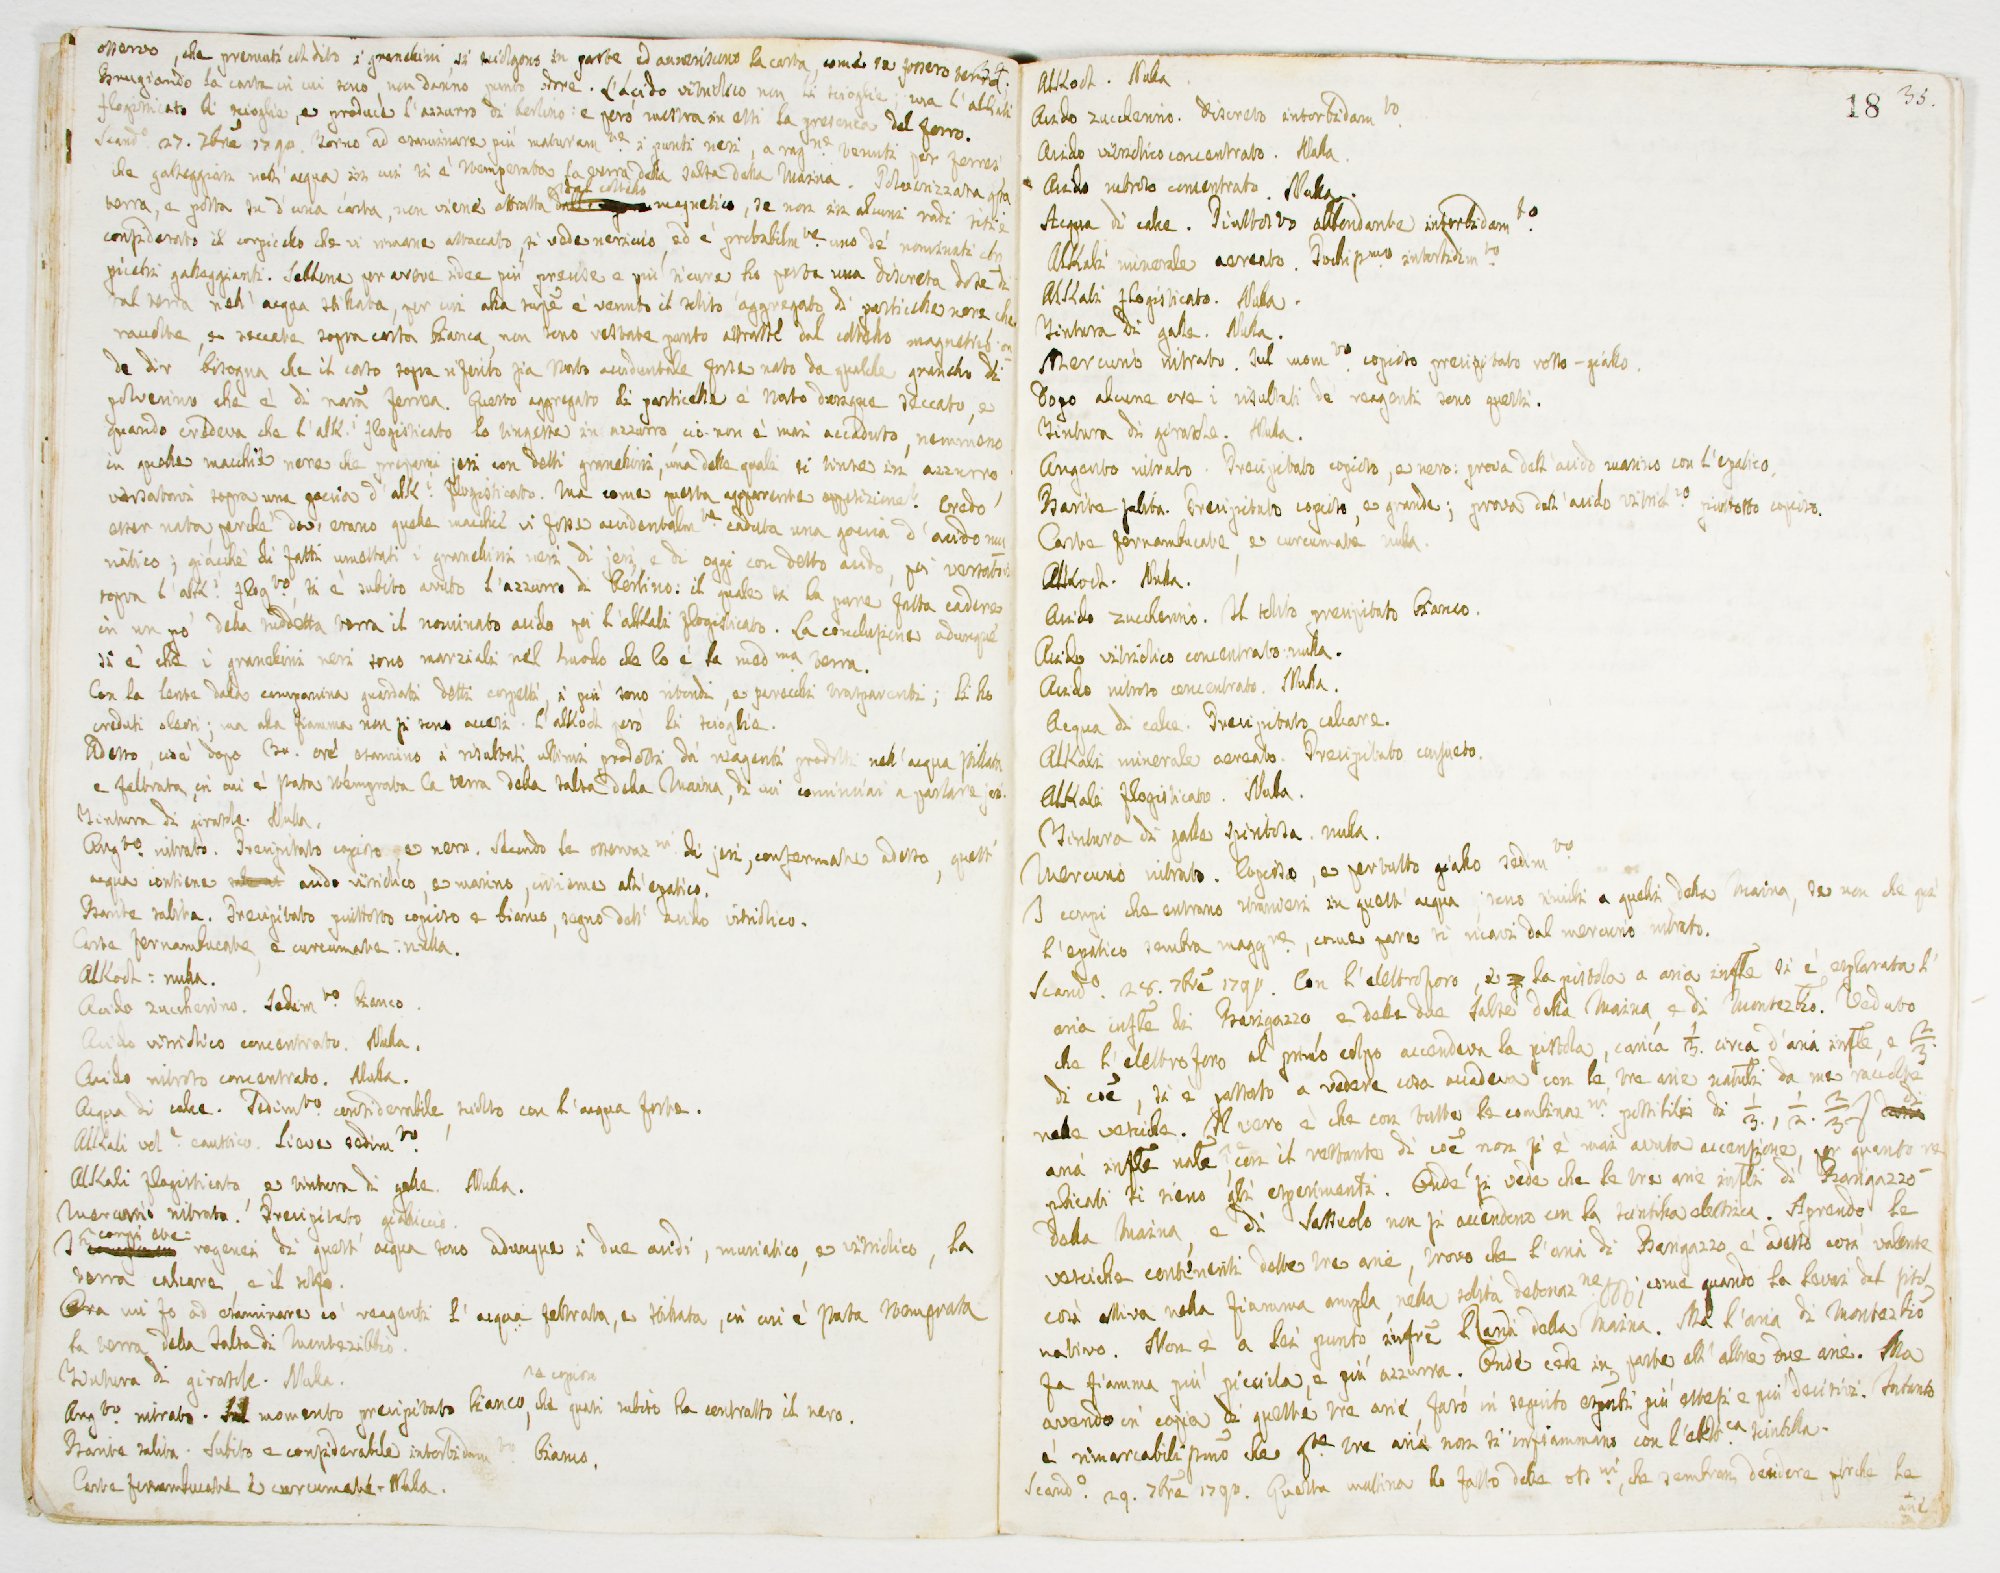 osservo, che premuti col dito i granellini, si sciolgono in parte ed anneriscono la carta, come se fossero terra. 34.
Brugiando la carta in cui sono, non danno punto odore. L'acido vitriolico non li scioglie; ma l'alkali
flogisticato li scioglie, e produce l'azzurro di Berlino: e però mostra in essi la presenza del ferro.
Scand.o 27. 7bre 1790. Torno ad esaminare più maturam.te i punti neri, a rag.ne tenuti per ferrei,
che galleggian nell'acqua in cui si è stemperata la terra della salsa della Maina. Polverizzata q.ta
terra, e posta su d'una carta, non viene attratta dal coltello magnetico, se non in alcuni radi siti: e
considerato il corpicello che vi rimane attaccato, si vede nericcio, ed è probabilm.te uno de' nominati cor
picelli galleggianti. Sebbene per avere idee più precise e più sicure ho posta una discreta dose di
tal terra nell'acqua stillata, per cui alla supe è venuto il solito aggregato di particelle nere che
raccolte, e seccate sopra carta bianca, non sono restate punto attratte dal coltello magnetico: on
de dir bisogna che il corto sopra riferito sia stato accidentale forse nato da qualche granello di
polverino che è di natu ferrea. Questo aggregato di particelle è stato dunque seccato, e
quando credeva che l'alk.i flogisticato lo tingesse in azzurro, ciò non è mai accaduto, nemmeno
in quelle macchie nere che preparai jeri con detti granellini, una delle quali si tinse in azzurro,
versatovi sopra una goccia d'alk.i flogisticato. Ma come questa apparente opposizione? Credo
esser nata perchè dov'erano quelle macchie vi fosse accidentalm.te caduta una goccia d'acido mu
riatico; giacchè di fatti umettati i granellini neri di jeri, e di oggi con detto acido, poi versatovi
sopra l'alk.i flog.to, si è subito avuto l'azzurro di Berlino: il quale si ha pure fatta cadere
in un po' della suddetta terra il nominato acido poi l'alkali flogisticato. La conclusione adunque
si è che i granellini neri sono marziali nel modo che lo è la med.ma terra.
Con la lente della campanina guardati detti corpetti, i più sono ritondi, e parecchi trasparenti; li ho
creduti oleosi; ma alla fiamma non si sono accesi. L'alkool però li scioglie.
Adesso, cioè dopo ore, esamino i risultati ultimi prodotti da' reagenti prodotti nell'acqua stillata
e feltrata, in cui è stata stemprata la terra della salsa della Maina, di cui cominciai a parlare jeri.
Tintura di girasole. Nulla.
Arg.to nitrato. Precipitato copioso, e nero. Secondo le osservaz.ni di jeri, confermate adesso, quest'
acqua contiene acido vitriolico, e marino, insieme all'epatico.
Barite salita. Precipitato piuttosto copioso e bianco, segno dell'acido vitriolico.
Carte fernambucate, e curcumate: nulla.
Alkool: nulla.
Acido zuccherino. Sedim.to bianco.
Acido vitriolico concentrato. Nulla.
Acido nitroso concentrato. Nulla.
Acqua di calce. Sedim.to considerabile, sciolto con l'acqua forte.
Alkali vol.e caustico. Lieve sedim.to.
Alkali flogisticato, e tintura di galle. Nulla.
Mercurio nitrato. Precipitato gialliccio.
I corpi ete rogenei di quest'acqua sono adunque i due acidi, muriatico, e vitriolico, la
terra calcare e il solfo.
Ora mi fo ad esaminare co' reagenti l'acqua feltrata, e stillata, in cui è stata stemprata
la terra della salsa di Montezibbio.
Tintura di girasole. Nulla.
Arg.to nitrato. Sul momento precipitato bianco, e copioso che quasi subito ha contratto il nero.
Barite salita. Subito e considerabile intorbidam.to bianco.
Carte fernambucate e curcumate. Nulla.
18 35.
Alkool. Nulla.
Acido zuccherino. Discreto intorbidam.to
Acido vitriolico concentrato. Nulla.
Acido nitroso concentrato. Nulla.
Acqua di calce. Piuttosto abbondante intorbidam.to.
Alkali minerale aereato. Pochiss.mo intorbidim.to
Alkali flogisticato. Nulla.
Tintura di galle. Nulla.
Mercurio nitrato. Sul mom.to copioso precipitato rosso-giallo.
Dopo alcune ore i risultati de' reagenti sono questi.
Tintura di girasole. Nulla.
Argento nitrato. Precipitato copioso, e nero: prova dell'acido marino con l'epatico.
Barite salita. Precipitato copioso, e grande; prova dell'acido vitriol.co piuttosto copioso.
Carte fernambucate, e curcumate nulla.
Alkool. Nulla.
Acido zuccherino. Il solito precipitato bianco.
Acido vitriolico concentrato. nulla.
Acido nitroso concentrato. Nulla.
Acqua di calce. Precipitato calcare.
Alkali minerale aereato. Precipitato consueto.
Alkali flogisticato. Nulla.
Tintura di galle spiritosa. nulla.
Mercurio nitrato. Copioso, e pertutto giallo sedim.to
I corpi che entrano stranieri in quest'acqua sono simili a quelli della Maina, se non che qui
l'epatico sembra magg.re, come pare si ricavi dal mercurio nitrato.
Scand.o 28. 7bre 1790. Con l'elettroforo, e la pistola a aria infle si è esplorata l'
aria infle di Barigazzo e delle due Salse della Maina e di Montezibio. Veduto
che l'elettroforo al primo colpo accendeva la pistola, carica 1/3. circa d'aria infle, e 2/3.
di coe, si è passato a vedere cosa accadeva con le tre arie naturali da me raccolte
nelle vesciche. Il vero è che con tutte le combinaz.ni possibili di 1/3., 1/2. 2/3 di
aria infle nale, e con il restante di coe non si è mai avuta accensione, per quanto re
plicati si sieno gli esperimenti. Onde si vede che le tre arie infli di Barigazzo
della Maina, e di Sassuolo non si accendono con la scintilla elettrica. Aprendo le
vesciche contenenti dette tre arie, trovo che l'aria di Barigazzo è adesso così valente
così attiva nella fiamma ampla nella solita detonaz.ne, come quando la levai dal sito
nativo. Non e a lei punto infre l'aria della Maina. Ma l'aria di Montezibio
fa fiamma più picciola, e più azzurra. Onde cede in parte all'altre due arie. Ma
avendo in copia di queste tre arie, farò in seguito espti più estesi e più decisivi. Intanto
è rimarcabilissimo che q.te tre arie non si infiammano con l'elett.ca scintilla.
Scand.o 29. 7bre 1790. Questa mattina ho fatto delle oss.ni, che sembran decidere perchè le
arie